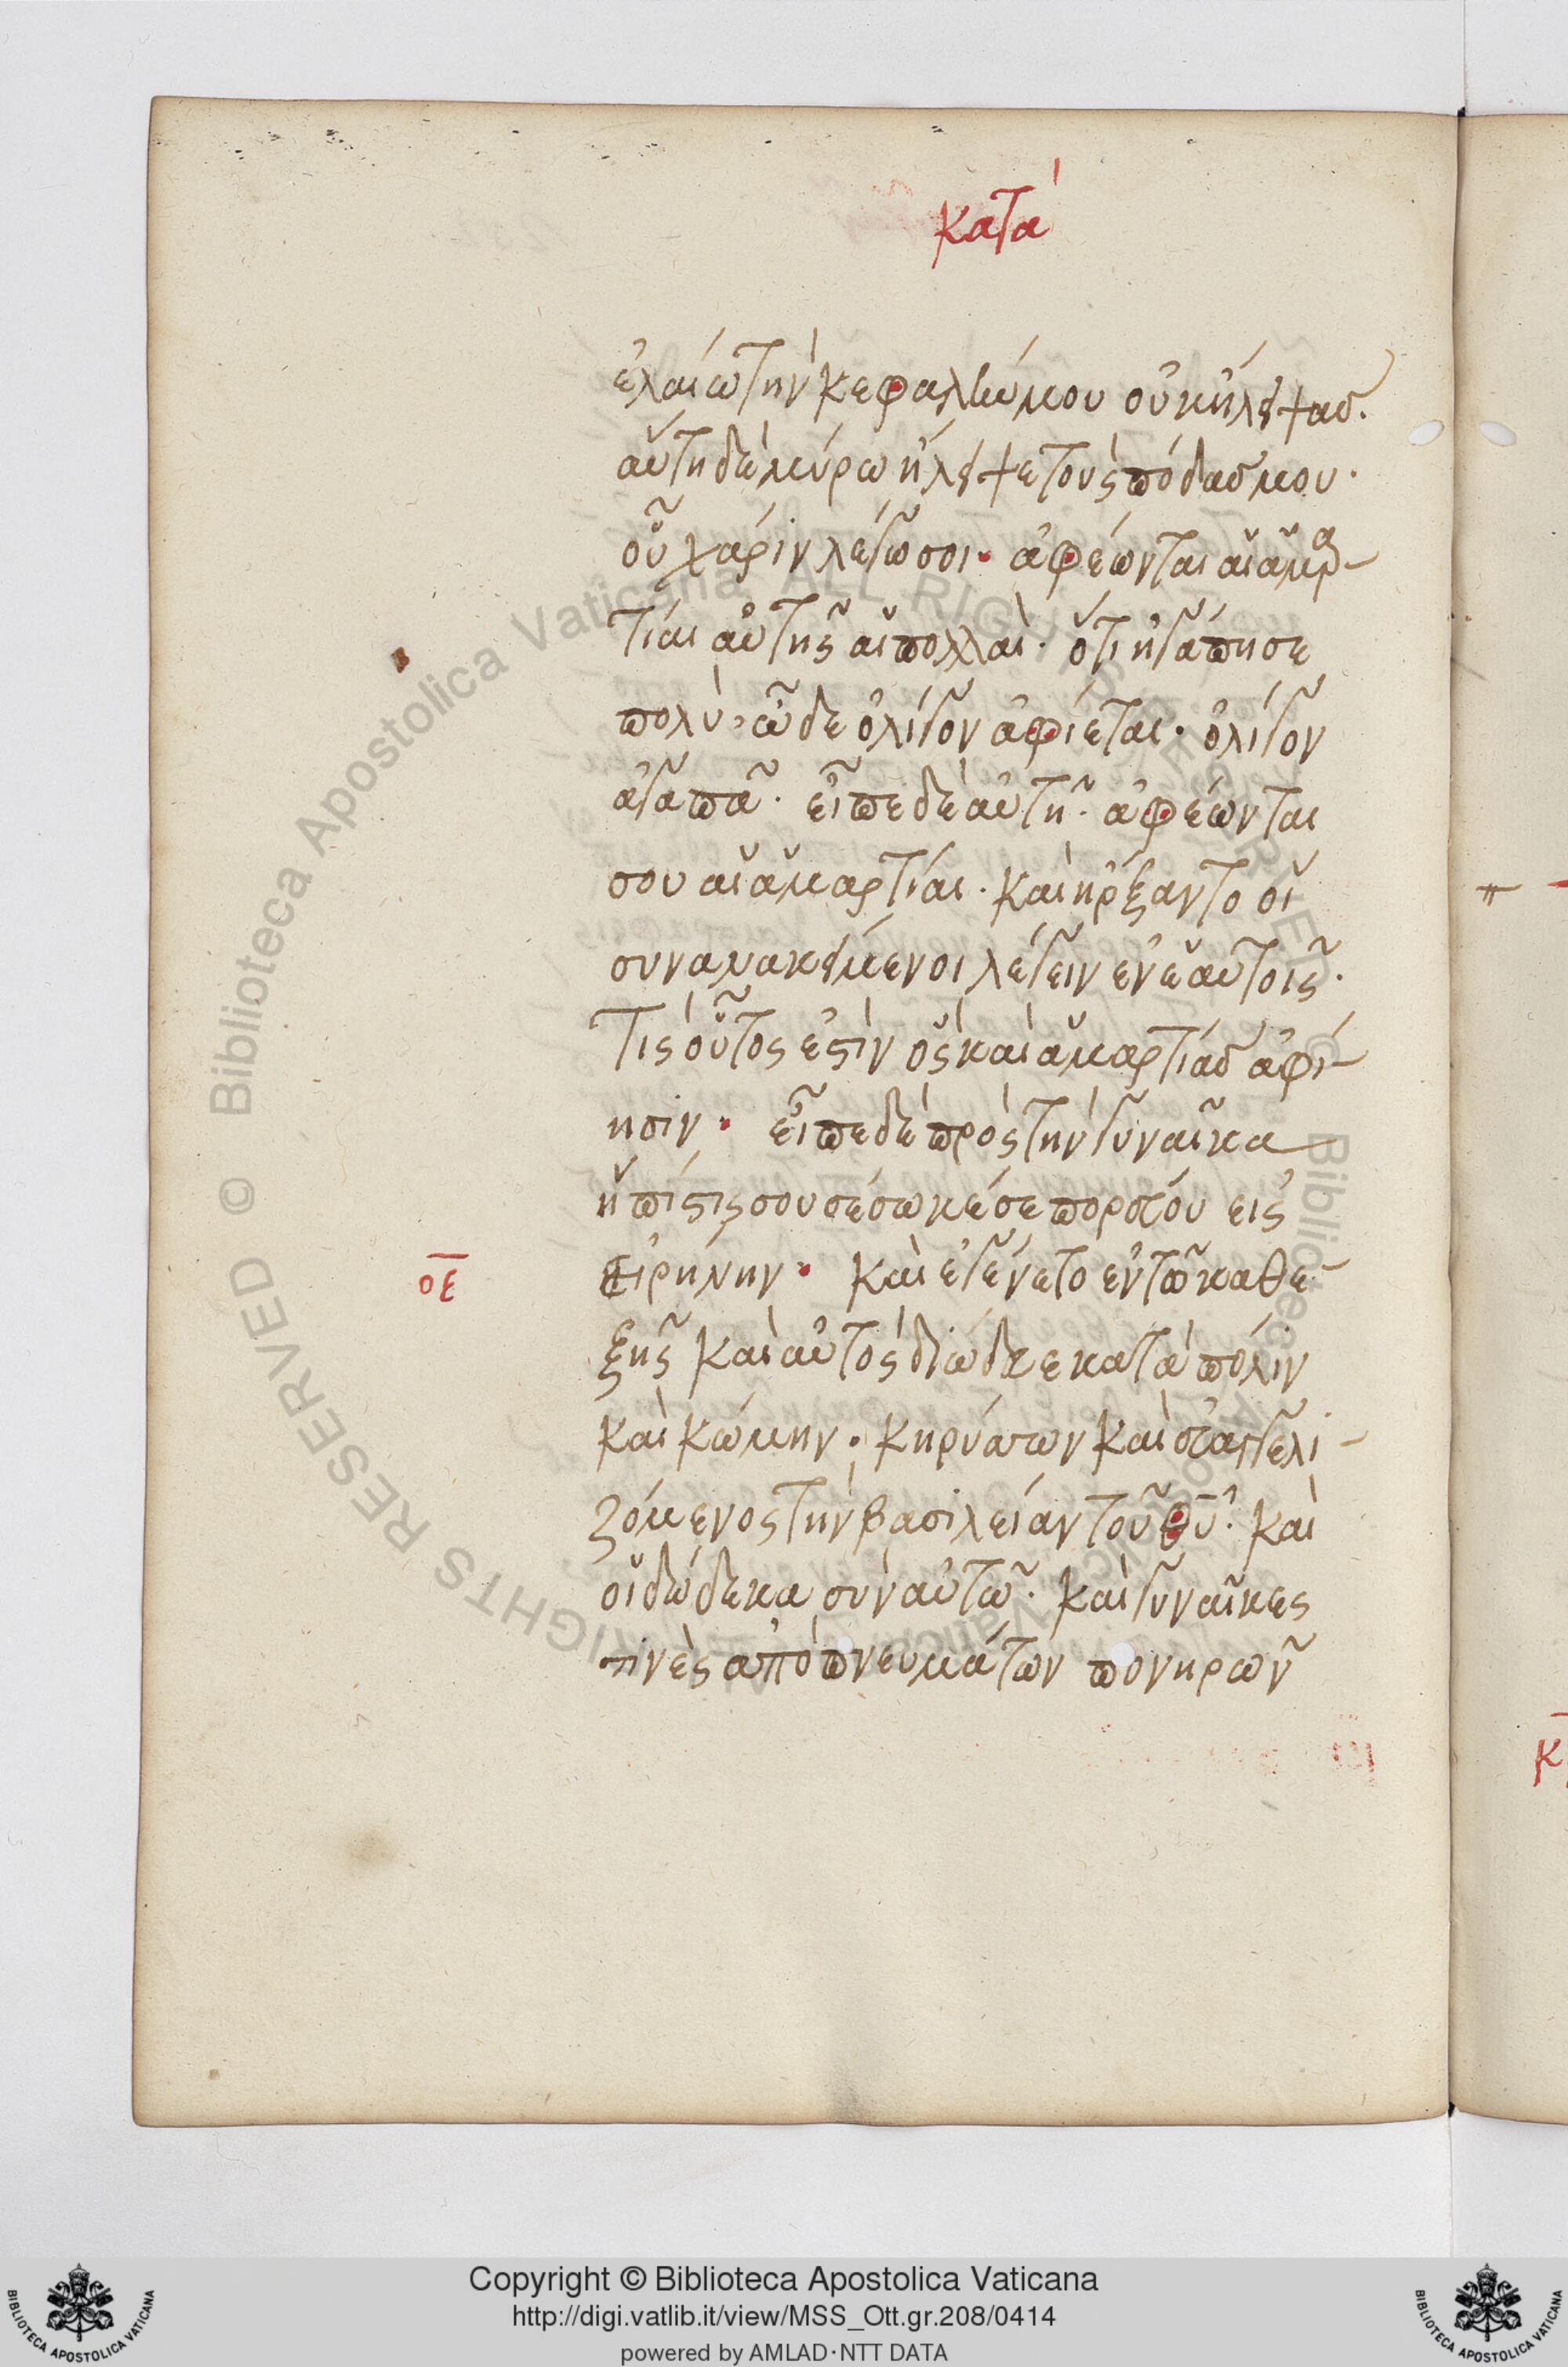 κατὰ
ἐλαίω τὴν κεφαλήν μου οὐκ ἤλειψας.
αὕτη δὲ μύρω ἤλειψε τοὺς πόδας μου.
οὗ χάριν λέγω σοι. ἀφέωνται αἱ ἁμαρ-
τίαι αὐτῆς αἱ πολλαὶ. ὅτι ἠγάπησε
πολύ, ὧ δὲ ὀλίγον ἀφίεται. ὀλίγον
ἀγαπᾶ. εἶπε δὲ αὐτῆ. ἀφέωνται
σου αἱ ἁμαρτίαι. καὶ ἤρξαντο οἱ
συνανακείμενοι λέγειν ἐν ἑαυτοῖς.
τὶς οὗτος ἐστὶν ὃς καὶ ἁμαρτίας ἀφί-
ησιν. εἶπε δὲ πρὸς τὴν γυναῖκα
ἡ πίστις σου σέσωκέ σε πορεύου εἰς
εἰρήνην. καὶ ἐγένετο ἐν τῶ καθε-
ξῆς καὶ αὐτὸς διώδευε κατὰ πόλιν
οε
καὶ κώμην. κηρύσσων καὶ εὐαγγελι-
ζόμενος τὴν βασιλείαν τοῦ θ̅υ̅. καὶ
οἱ δώδεκα σὺν αὐτῶ. καὶ γυναῖκες
τινὲς ἀπὸ πνευμάτων πονηρῶν
© Biblioteca Apostolica Vaticana ALL RIGHTS RESERVED
Copyright © Biblioteca Apostolica Vaticana
http://digi.vatlib.it/view/MSS_Ott.gr.208/0414
powered by AMLAD·NTT DATA
BIBLIOTECA APOSTOLICA VATICANA
BIBLIOTECA APOSTOLICA VATICANA